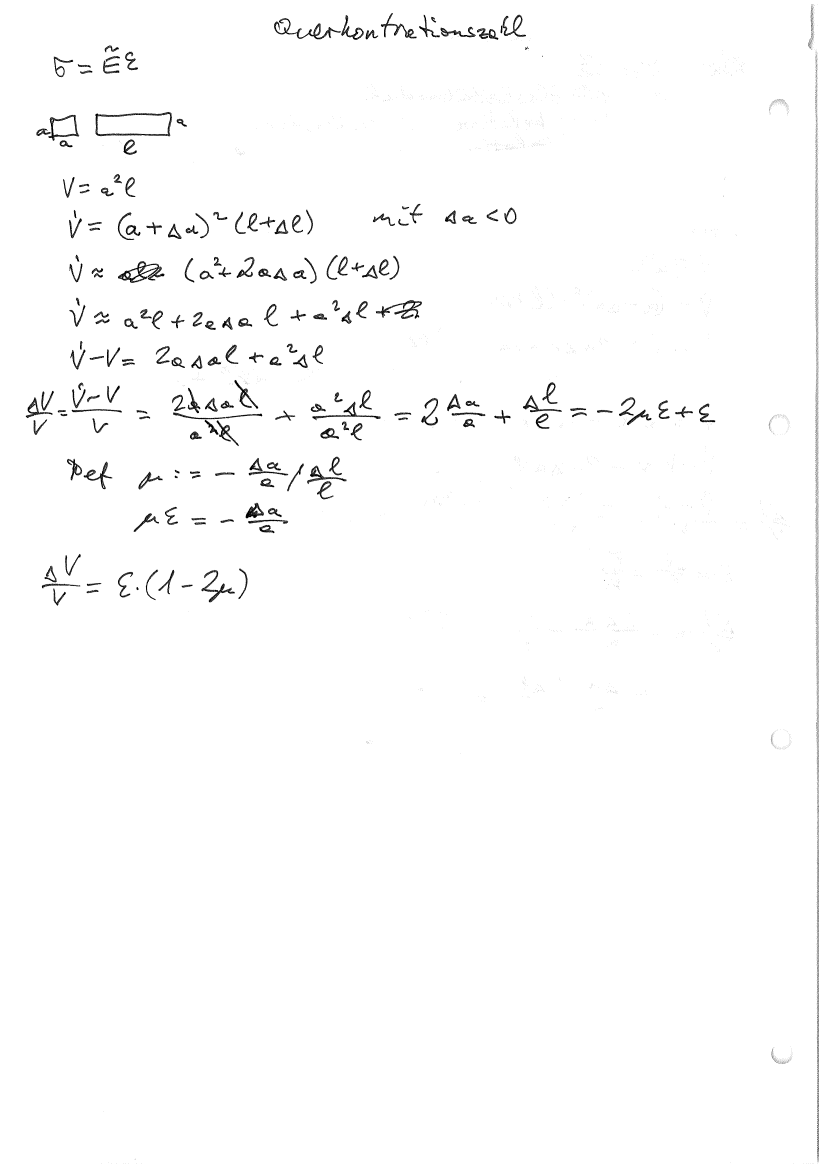 Querkontraktionszahl
σ = Ẽ ε
a a a
l
V = a²l
V̇ = (a + Δa)² (l + Δl) mit Δa < 0
V̇ ≈ (a² + 2aΔa) (l + Δl)
V̇ ≈ a²l + 2aΔa l + a²Δl
V̇ - V = 2aΔal + a²Δl
ΔV/V = (V̇ - V)/V = 2aΔal/a²l + a²Δl/a²l = 2 Δa/a + Δl/l = -2με + ε
Def μ := - Δa/a / Δl/l
με = - Δa/a
ΔV/V = ε·(1 - 2μ)